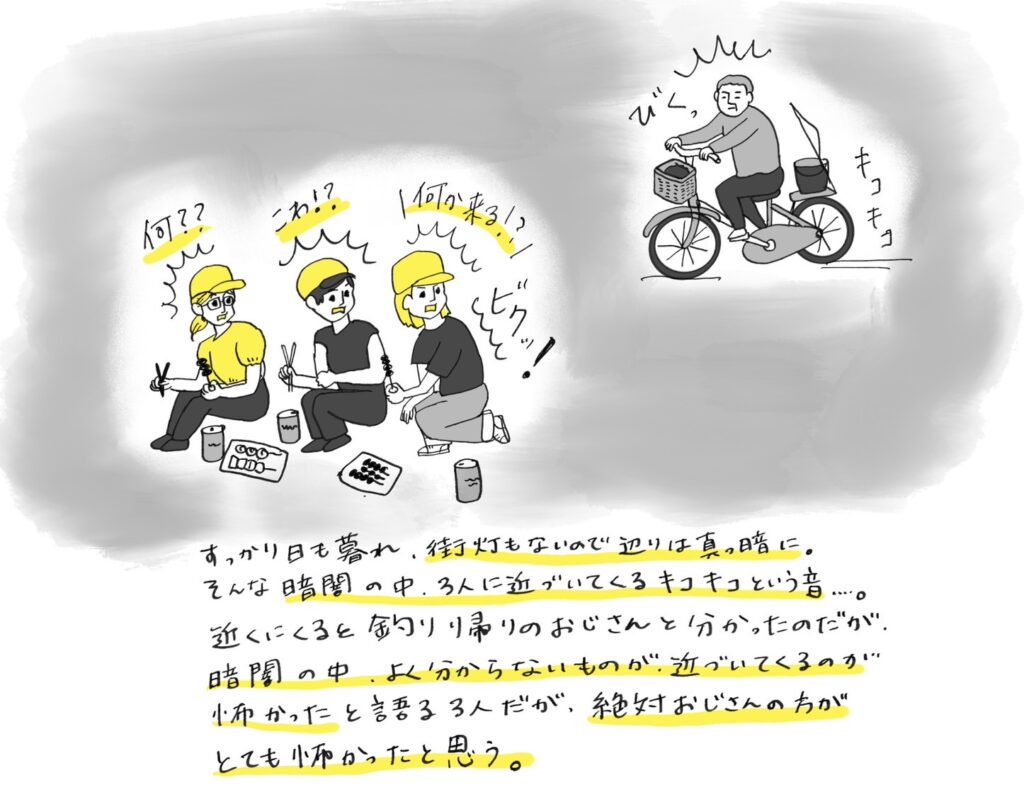 何??
こわ!?
何か来る!?
ビクッ!
びくっ
キコキコ
すっかり日も暮れ、街灯もないので辺りは真っ暗に。
そんな暗闇の中、3人に近づいてくるキコキコという音……。
近くにくると釣りり帰りのおじさんと分かったのだが、
暗闇の中、よく分からないものが、近づいてくるのが
怖かったと語る3人だが、絶対おじさんの方が
とても怖かったと思う。